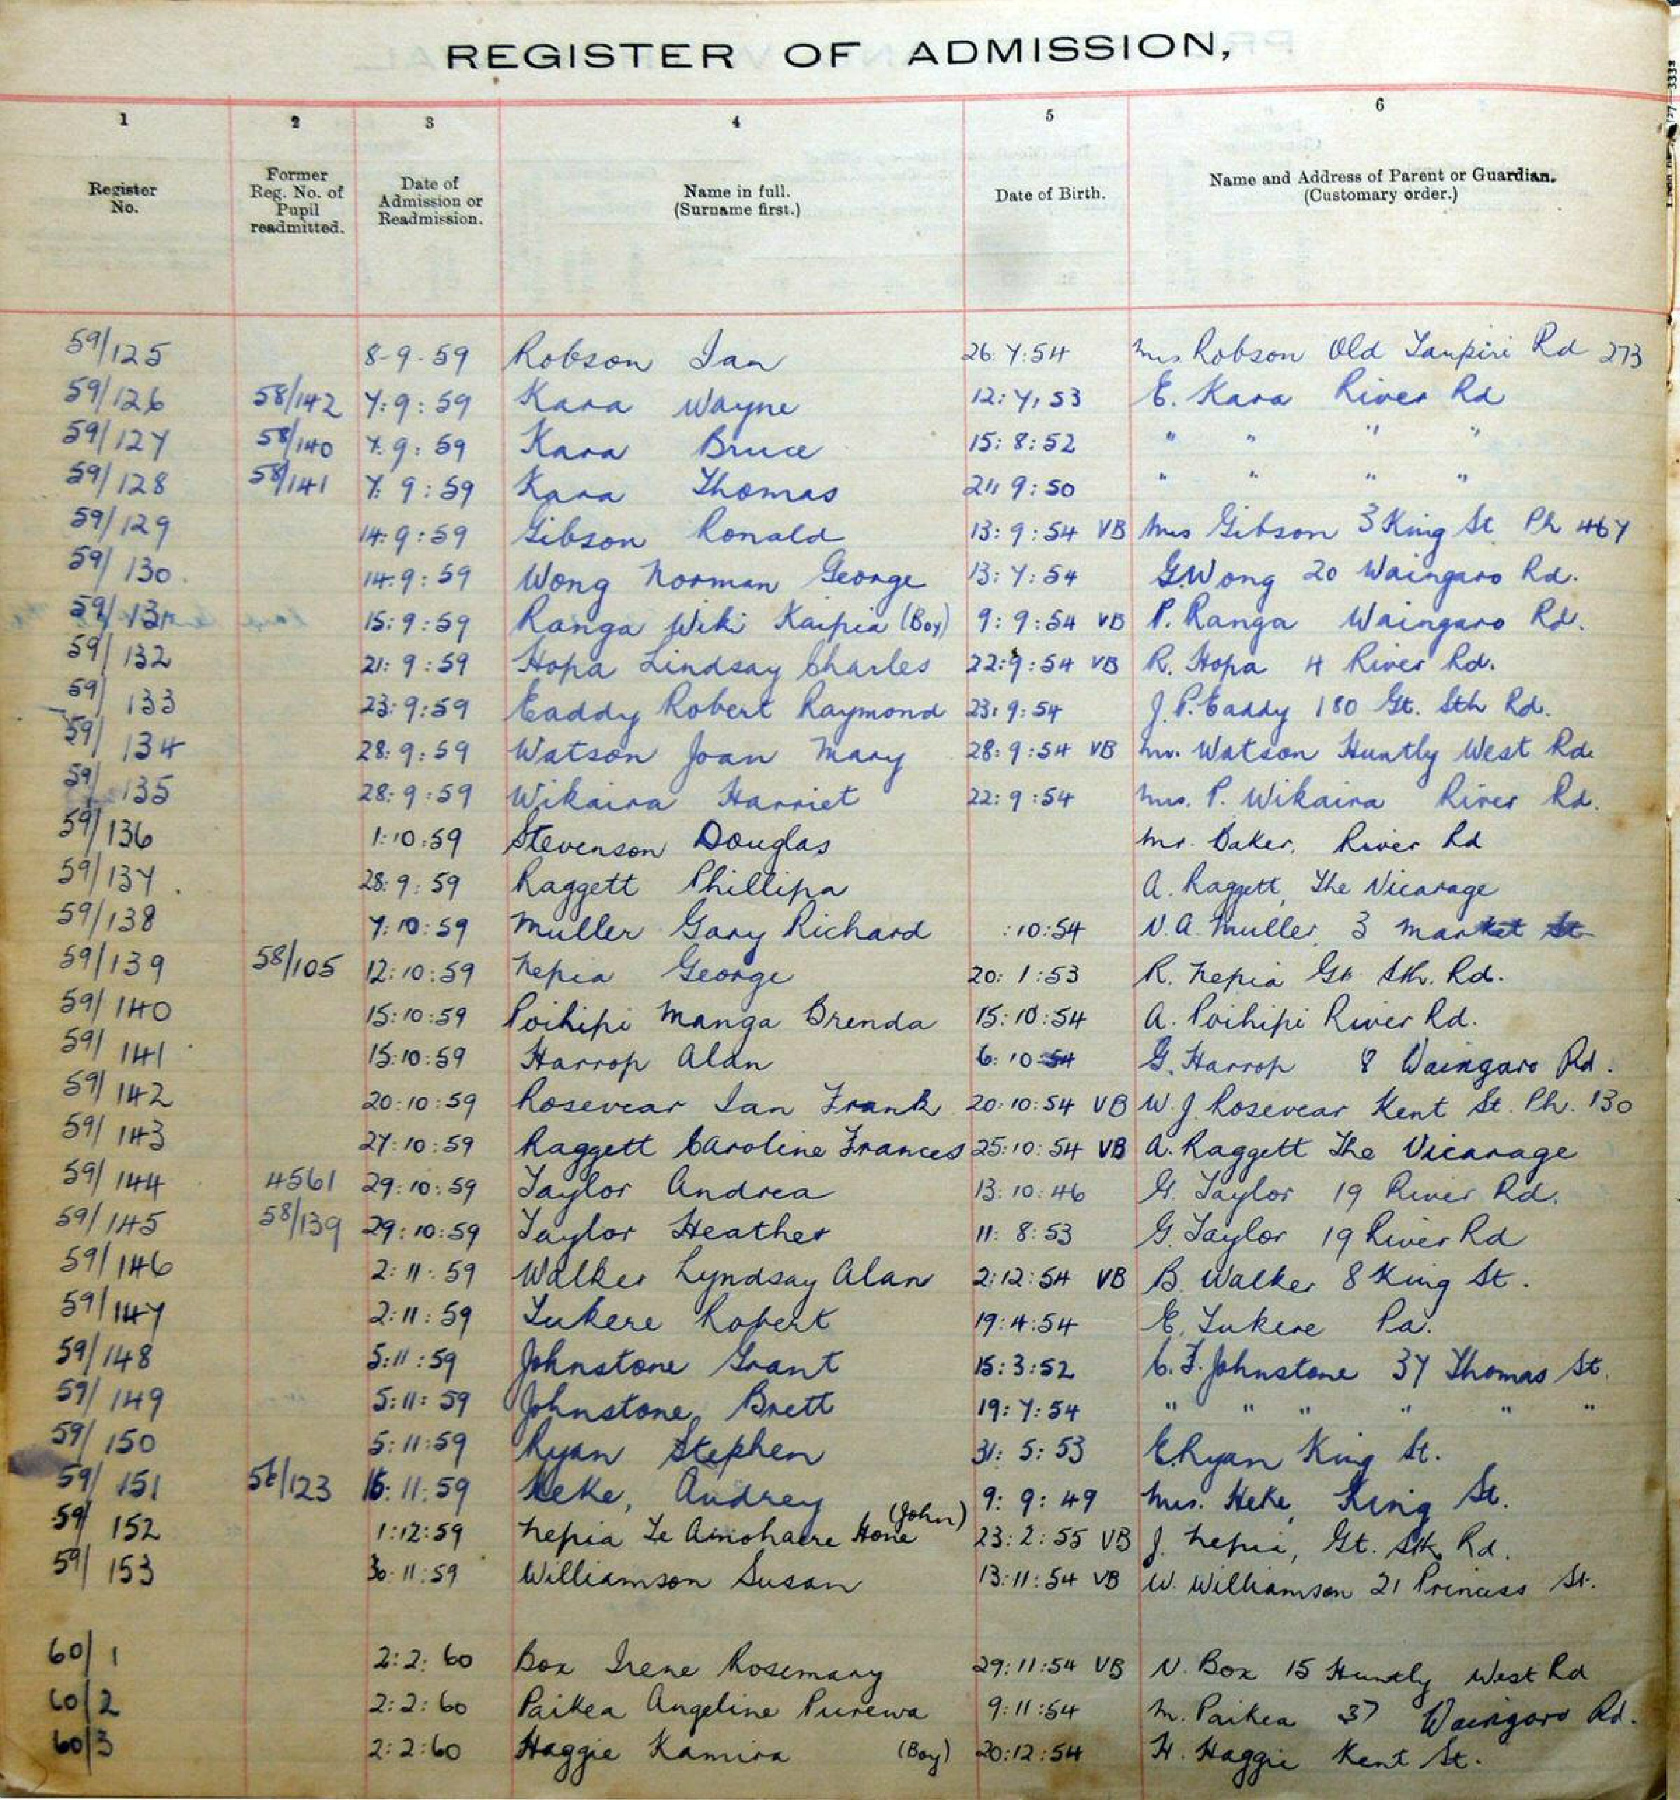 REGISTER OF ADMISSION,
1 2 3 4 5 6
Register No. Former Reg. No. of Pupil readmitted. Date of Admission or Readmission. Name in full. (Surname first.) Date of Birth. Name and Address of Parent or Guardian. (Customary order.)
59/125 8-9-59 Robson Ian 26.7:54 Mrs Robson Old Taupiri Rd 273
59/126 58/142 7:9:59 Kara Wayne 12:7:53 E. Kara River Rd
59/127 58/140 7.9:59 Kara Bruce 15:8:52 " " " "
59/128 58/141 7:9:59 Kara Thomas 21:9:50 " " " "
59/129 14:9:59 Gibson Ronald 13:9:54 VB Mrs Gibson 3 King St Ph 467
59/130 14:9:59 Wong Norman George 13:7:54 G Wong 20 Waingaro Rd.
59/131 15:9:59 Ranga Wiki Kaipia (Boy) 9:9:54 VB P. Ranga Waingaro Rd.
59/132 21:9:59 Hopa Lindsay Charles 22:9:54 VB R. Hopa 4 River Rd.
59/133 23:9:59 Eaddy Robert Raymond 23:9:54 J. P. Eaddy 180 Gt. Sth Rd.
59/134 28:9:59 Watson Joan Mary 28:9:54 VB Mr. Watson Huntly West Rd.
59/135 28:9:59 Wikaira Harriet 22:9:54 Mrs. P. Wikaira River Rd.
59/136 1:10:59 Stevenson Douglas Mr. Baker, River Rd
59/137 28:9:59 Raggett Phillipa A. Raggett, The Vicarage
59/138 7:10:59 Muller Gary Richard :10:54 N. A. Muller, 3 Market St
59/139 58/105 12:10:59 Nepia George 20:1:53 R. Nepia Gt Sth. Rd.
59/140 15:10:59 Poihipi Manga Brenda 15:10:54 A. Poihipi River Rd.
59/141 15:10:59 Harrop Alan 6:10:54 G. Harrop 8 Waingaro Rd.
59/142 20:10:59 Rosevear Ian Frank 20:10:54 VB W. J. Rosevear Kent St. Ph. 130
59/143 27:10:59 Raggett Caroline Frances 25:10:54 VB A. Raggett The Vicarage
59/144 4561 29:10:59 Taylor Andrea 13:10:46 G. Taylor 19 River Rd.
59/145 58/139 29:10:59 Taylor Heather 11:8:53 G. Taylor 19 River Rd
59/146 2:11:59 Walker Lyndsay Alan 2:12:54 VB B. Walker 8 King St.
59/147 2:11:59 Tukere Robert 19:4:54 E. Tukere Pa.
59/148 5:11:59 Johnstone Grant 15:3:52 C. F. Johnstone 37 Thomas St.
59/149 5:11:59 Johnstone, Brett 19:7:54 " " " " " "
59/150 5:11:59 Ryan Stephen 31:5:53 E. Ryan King St.
59/151 56/123 16:11:59 Heke, Audrey 9:9:49 Mrs. Heke, King St.
59/152 1:12:59 Nepia Te Amohaere Hone (John) 23:2:55 VB J. Nepia, Gt. Sth Rd.
59/153 30:11:59 Williamson Susan 13:11:54 VB W. Williamson 21 Princess St.
60/1 2:2:60 Box Irene Rosemary 29:11:54 VB N. Box 15 Huntly West Rd
60/2 2:2:60 Paikea Angeline Purewa 9:11:54 M. Paikea 37 Waingaro Rd.
60/3 2:2:60 Haggie Kamira (Boy) 20:12:54 H. Haggie Kent St.